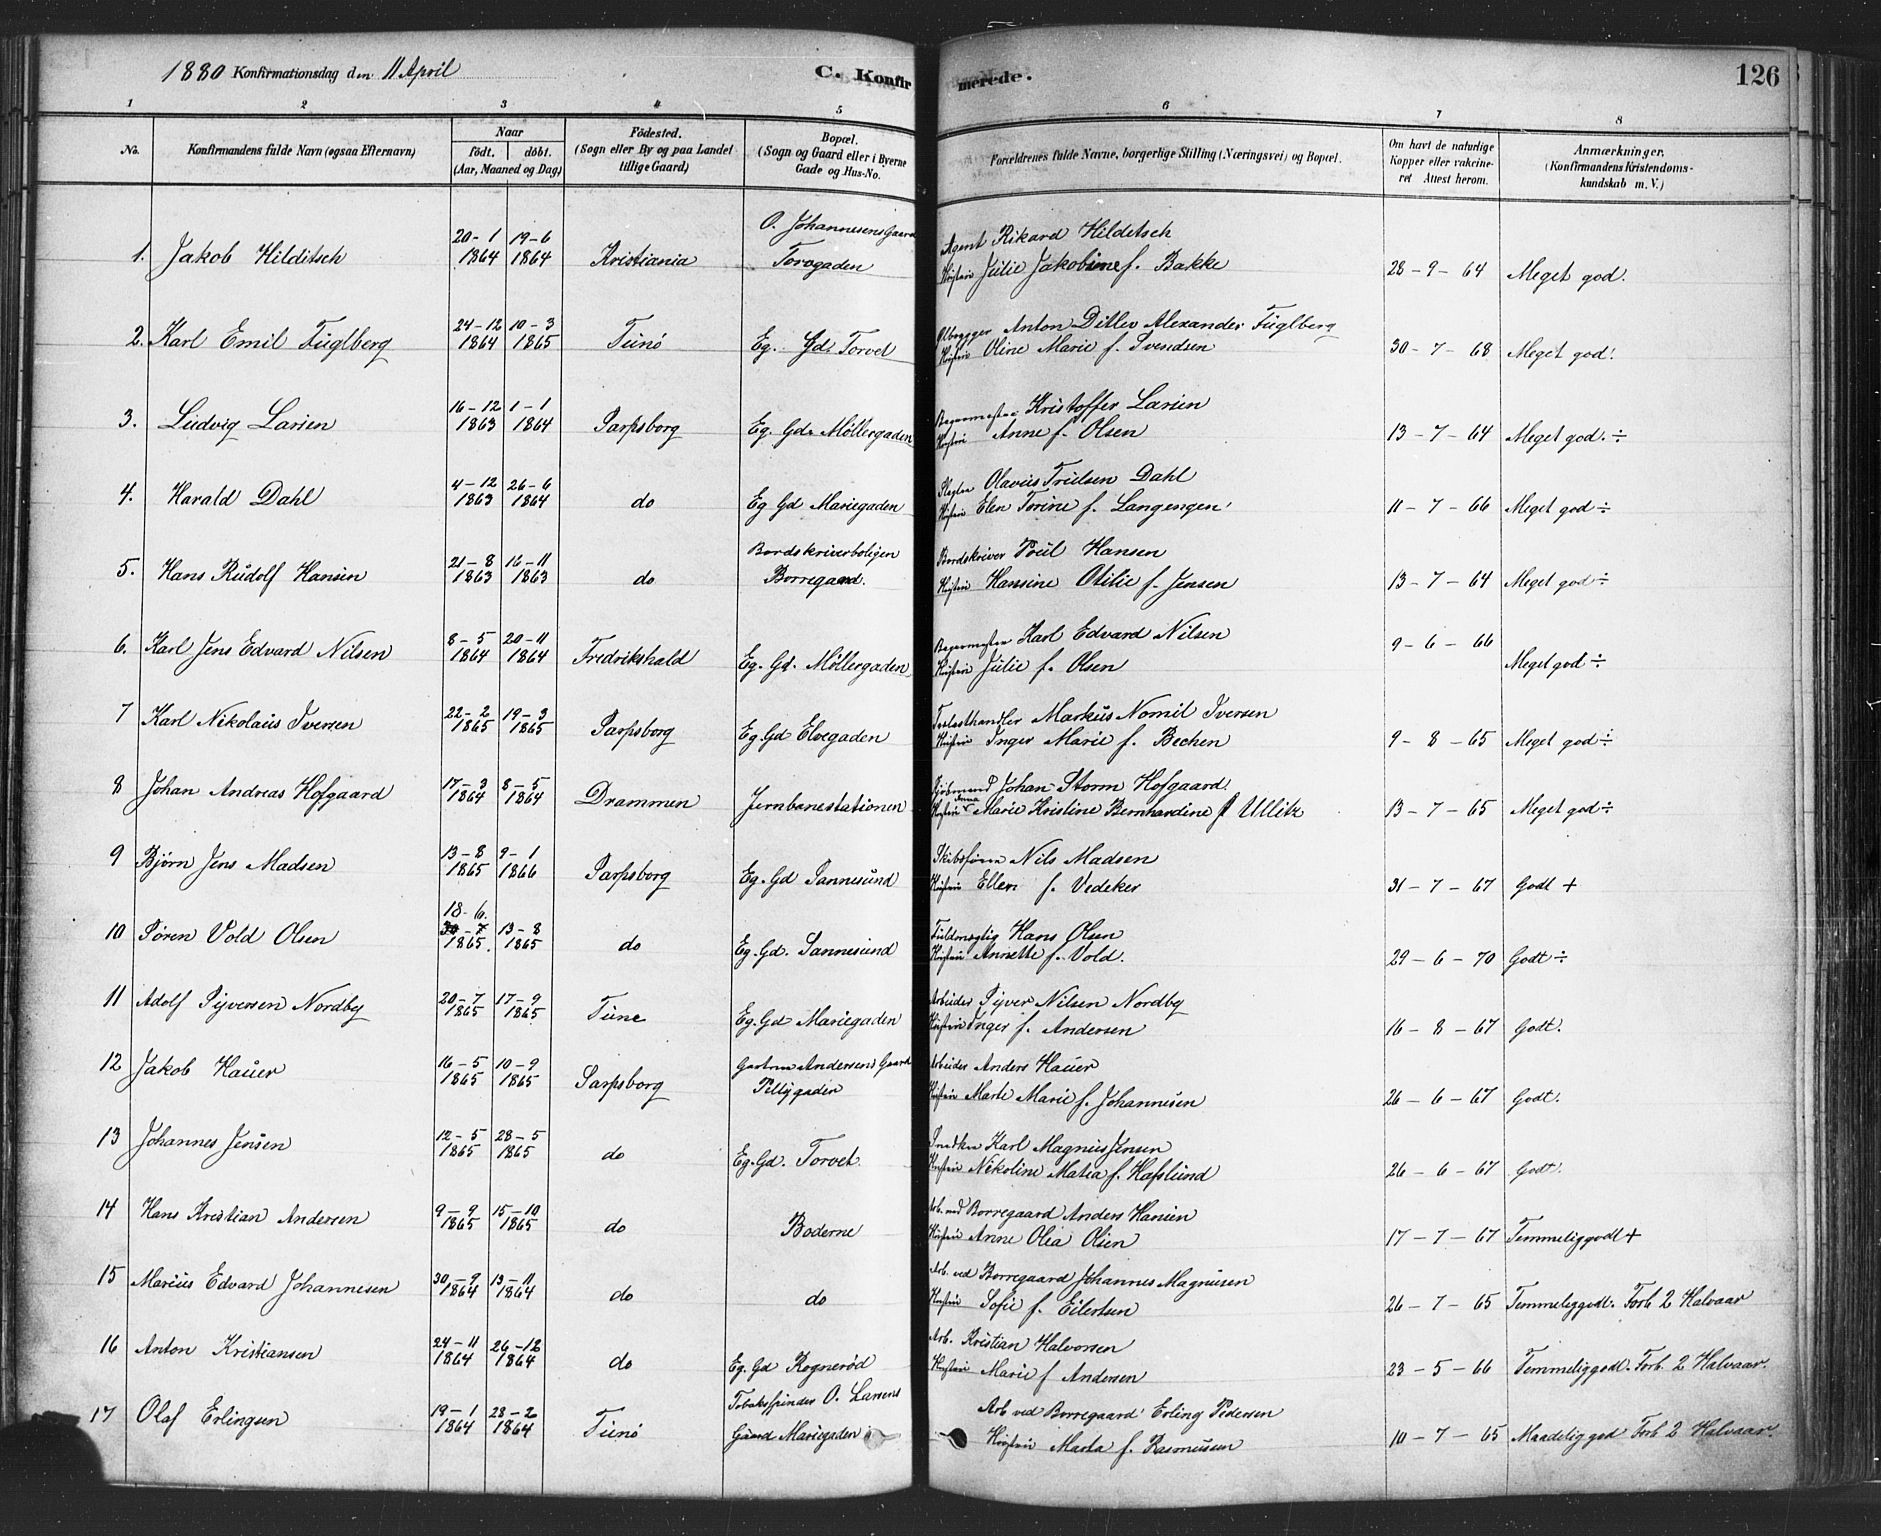 1880 Konfirmationsdag den 11 April
C. Konfirmerede.
126
1 2 3 4 5 6 7 8
No.
Konfirmandens fulde Navn (ogsaa Efternavn)
Naar
födt. döbt.
(Aar, Maaned og Dag)
Födested.
(Sogn eller By og paa Landet
tillige Gaard)
Bopæl.
(Sogn og Gaard eller i Byerne
Gade og Hus-No.
Forældrenes fulde Navne, borgerlige Stilling (Næringsvei) og Bopæl.
Om havt de naturlige
Kopper eller vakcine-
ret Attest herom.
Anmærkninger.
(Konfirmandens Kristendoms-
kundskab m. V.)
O. Johannesens Gaard
20-1 19-6 Agent Rikard Hilditsch
1. Jakob Hilditsch 1864 1864 Kristiania Torvgaden Hustru Julie Jakobine f. Bakke 28-9-64 Meget god.
24-12 10-3 Ølbrygger Anton Ditlev Alexander Fuglberg
2. Karl Emil Fuglberg 1864 1865 Tunø Eg. Gd. Torvet Hustru Oline Marie f. Svendsen 30-7-68 Meget god.
16-12 1-1 Kristoffer Larsen
3. Ludvig Larsen 1863 1864 Sarpsborg Eg. Gd. Møllergaden Hustru Anne f. Olsen 13-7-64 Meget god. ÷
4-12 26-6 Olavus Truelsen Dahl
4. Harald Dahl 1863 1864 do Eg Gd Mariegaden Hustru Elen Torine f. Langengen 11-7-66 Meget god ÷
21-8 16-11 Bordskriverboligen Bordskriver Poul Hansen
5. Hans Rudolf Hansen 1863 1863 do Borregaard. Hustru Hansine Otilie f. Jensen 13-7-64 Meget god ÷
8-5 20-11 Karl Edvard Nilsen
6. Karl Jens Edvard Nilsen 1864 1864 Fredrikshald Eg. Gd. Møllergaden Hustru Julie f. Olsen 9-6-66 Meget god ÷
22-2 19-3 Trælasthandler Markus Nomil Iversen
7 Karl Nikolaus Iversen 1865 1865 Sarpsborg Eg. Gd Elvegaden Hustru Inger Marie f. Bechen 9-8-65 Meget god ÷
17-3 8-5 Johan Storm Hofgaard
8 Johan Andreas Hofgaard 1864 1864 Drammen Jernbanestationen Hustru Anna Marie Kristine Bernhardine f Ullitz 13-7-65 Meget god ÷
13-8 9-1 Skibsfører Nils Madsen
9 Bjørn Jens Madsen 1865 1866 Sarpsborg Eg. Gd Sannesund Hustru Ellen f. Vedeker 31-7-67 Godt +
18-6.
30-7 13-8 Fuldmægtig Hans Olsen
10 Søren Vold Olsen 1865. 1865 do Eg. Gd. Sannesund Hustru Annette f. Vold. 29-6-70 Godt ÷
20-7 17-9 Arbeider Syver Nilsen Nordby
11 Adolf Syversen Nordby 1865 1865 Tune Eg. Gd Mariegaden Hustru Inger f. Andersen 16-8-67 Godt.
16-5 10-9 Andersens Gaard Arbeider Anders Hauer
12 Jakob Hauer 1865 1865 Sarpsborg Pellygaden Hustru Marte Marie f. Johannesen 26-6-67 Godt.
12-5 28-5 Snedker Karl Magnus Jensen
13 Johannes Jensen 1865 1865 do Eg. Gd. Torvet. Hustru Nikoline Matea f. Hafslund 26-6-67 Godt.
9-9 15-10 Arb. ved Borregaard Anders Hansen
14 Hans Kristian Andersen 1865 1865 do Boderne Hustru Anne Olea Olsen 17-7-67 Temmeliggodt +
30-9 13-11 Arb. ved Borregaard Johannes Magnusen
15 Marius Edvard Johannesen 1864 1864 do do Hustru Sofie f. Eilertsen 26-7-65 Temmeliggodt. Forb 2 Halvaar
24-11 26-12 Arb. Kristian Halvorsen
16 Anton Kristiansen 1864 1864 do Eg. Gd Rognerød Hustru Marie f Andersen 23-5-66 Temmeliggodt. Forb. 2 Halvaar.
19-1 28-2 Tobakspinder O. Larsens Arb ved Borregaard Erling Pedersen
17 Olaf Erlingsen 1864 1864 Tunø Gaard Mariegaden Hustru Marta f. Rasmussen 10-7-65 Maadeliggod Forb 2 Halvaar.